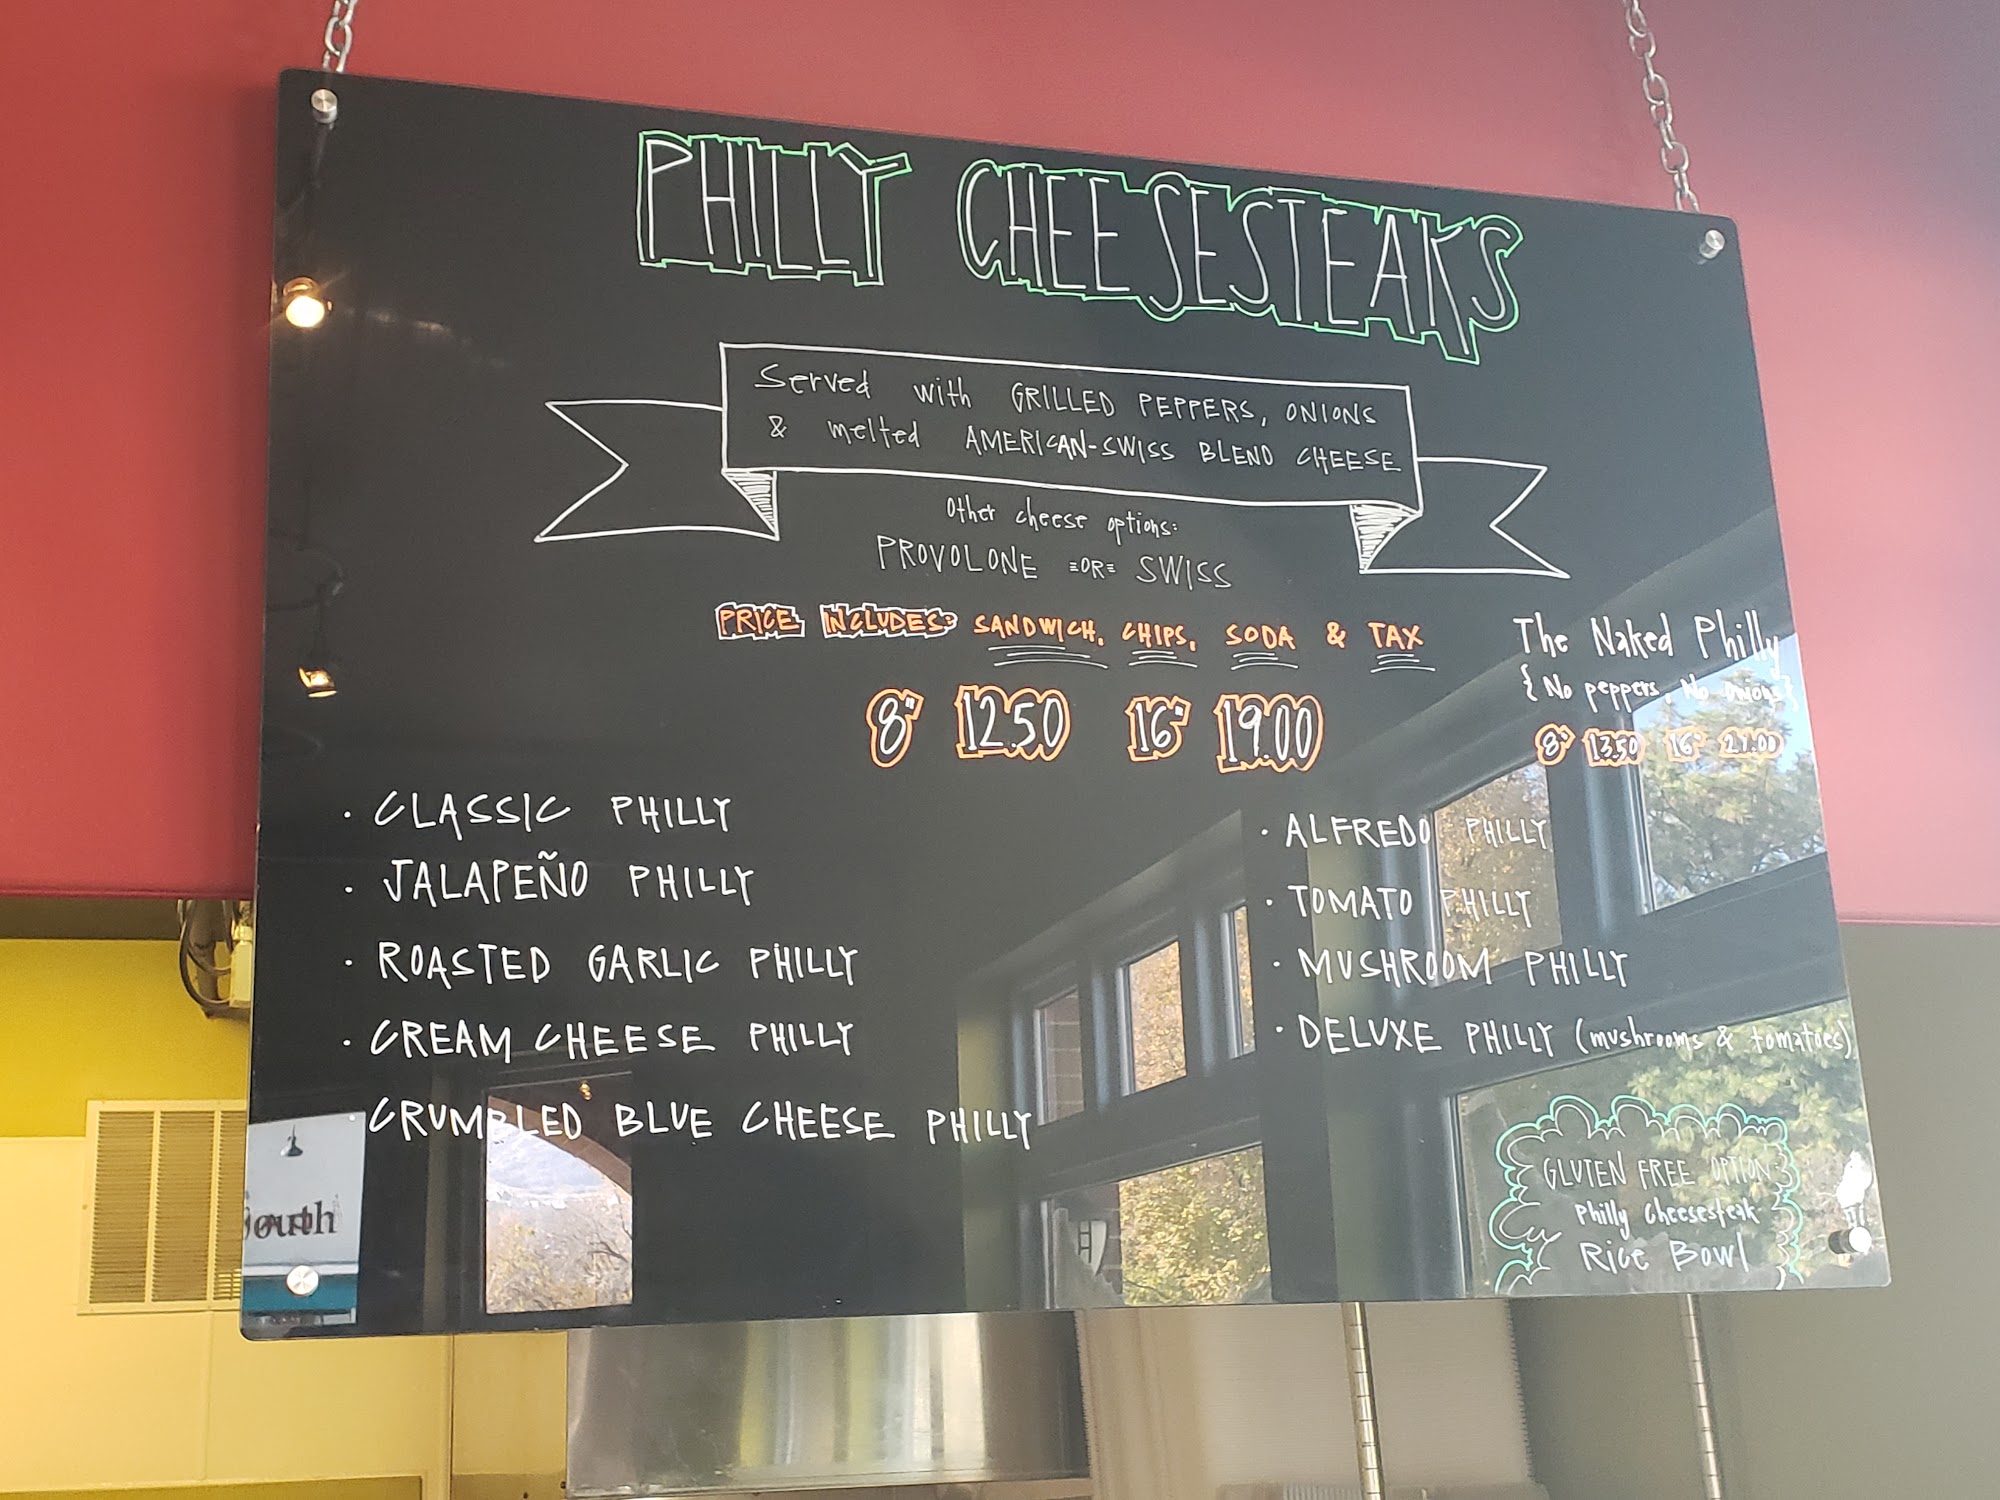 PHILLY CHEESESTEAKS
Served with GRILLED PEPPERS, ONIONS
& melted AMERICAN-SWISS BLEND CHEESE
Other cheese options:
PROVOLONE =OR= SWISS
PRICE INCLUDES: SANDWICH, CHIPS, SODA & TAX
8" 12.50 16" 19.00
The Naked Philly
{No peppers, No onions}
8" 13.50 16" 21.00
· CLASSIC PHILLY
· JALAPEÑO PHILLY
· ROASTED GARLIC PHILLY
· CREAM CHEESE PHILLY
· CRUMBLED BLUE CHEESE PHILLY
· ALFREDO PHILLY
· TOMATO PHILLY
· MUSHROOM PHILLY
· DELUXE PHILLY (mushrooms & tomatoes)
GLUTEN FREE OPTION:
Philly Cheesesteak
Rice Bowl